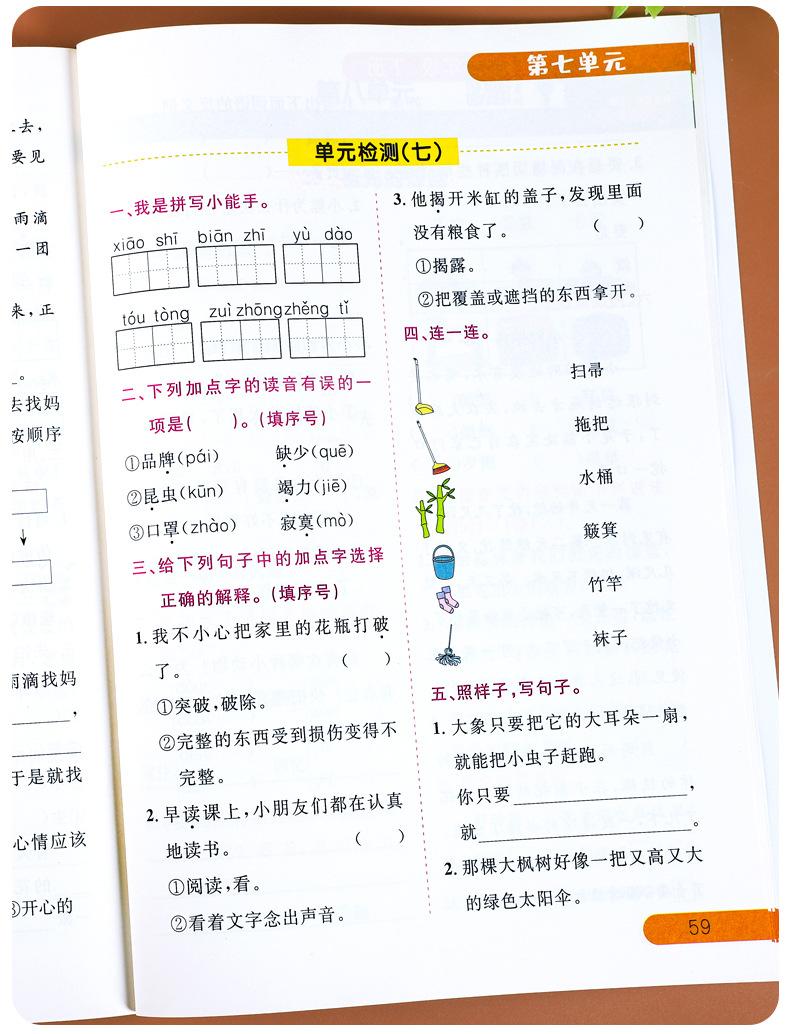 去,
要见
雨滴
一团
来,正
。
去找妈
按顺序
雨滴找妈
,
于是就找
心情应该
③开心的
第七单元
单元检测(七)
一、我是拼写小能手。
xiāo shī biān zhī yù dào
tóu tòng zuì zhōng zhěng tǐ
二、下列加点字的读音有误的一
项是( )。(填序号)
①品牌(pái) 缺少(quē)
②昆虫(kūn) 竭力(jiē)
③口罩(zhào) 寂寞(mò)
三、给下列句子中的加点字选择
正确的解释。(填序号)
1.我不小心把家里的花瓶打破
了。 ( )
①突破,破除。
②完整的东西受到损伤变得不
完整。
2.早读课上,小朋友们都在认真
地读书。 ( )
①阅读,看。
②看着文字念出声音。
3.他揭开米缸的盖子,发现里面
没有粮食了。 ( )
①揭露。
②把覆盖或遮挡的东西拿开。
四、连一连。
扫帚
拖把
水桶
簸箕
竹竿
袜子
五、照样子,写句子。
1.大象只要把它的大耳朵一扇,
就能把小虫子赶跑。
你只要____________,
就______________。
2.那棵大枫树好像一把又高又大
的绿色太阳伞。
59